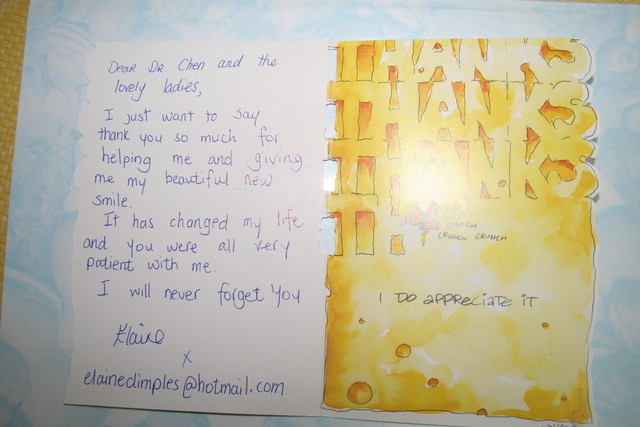 Dear Dr Chen and the
lovely ladies,
I just want to say
thank you so much for
helping me and giving
me my beautiful new
smile.
It has changed my life
and you were all very
patient with me.
I will never forget you
Elaine
x
elainedimples@hotmail.com
THANKS
THANKS
THANKS
CRUNCH
CRUNCH CRUNCH
I DO APPRECIATE IT